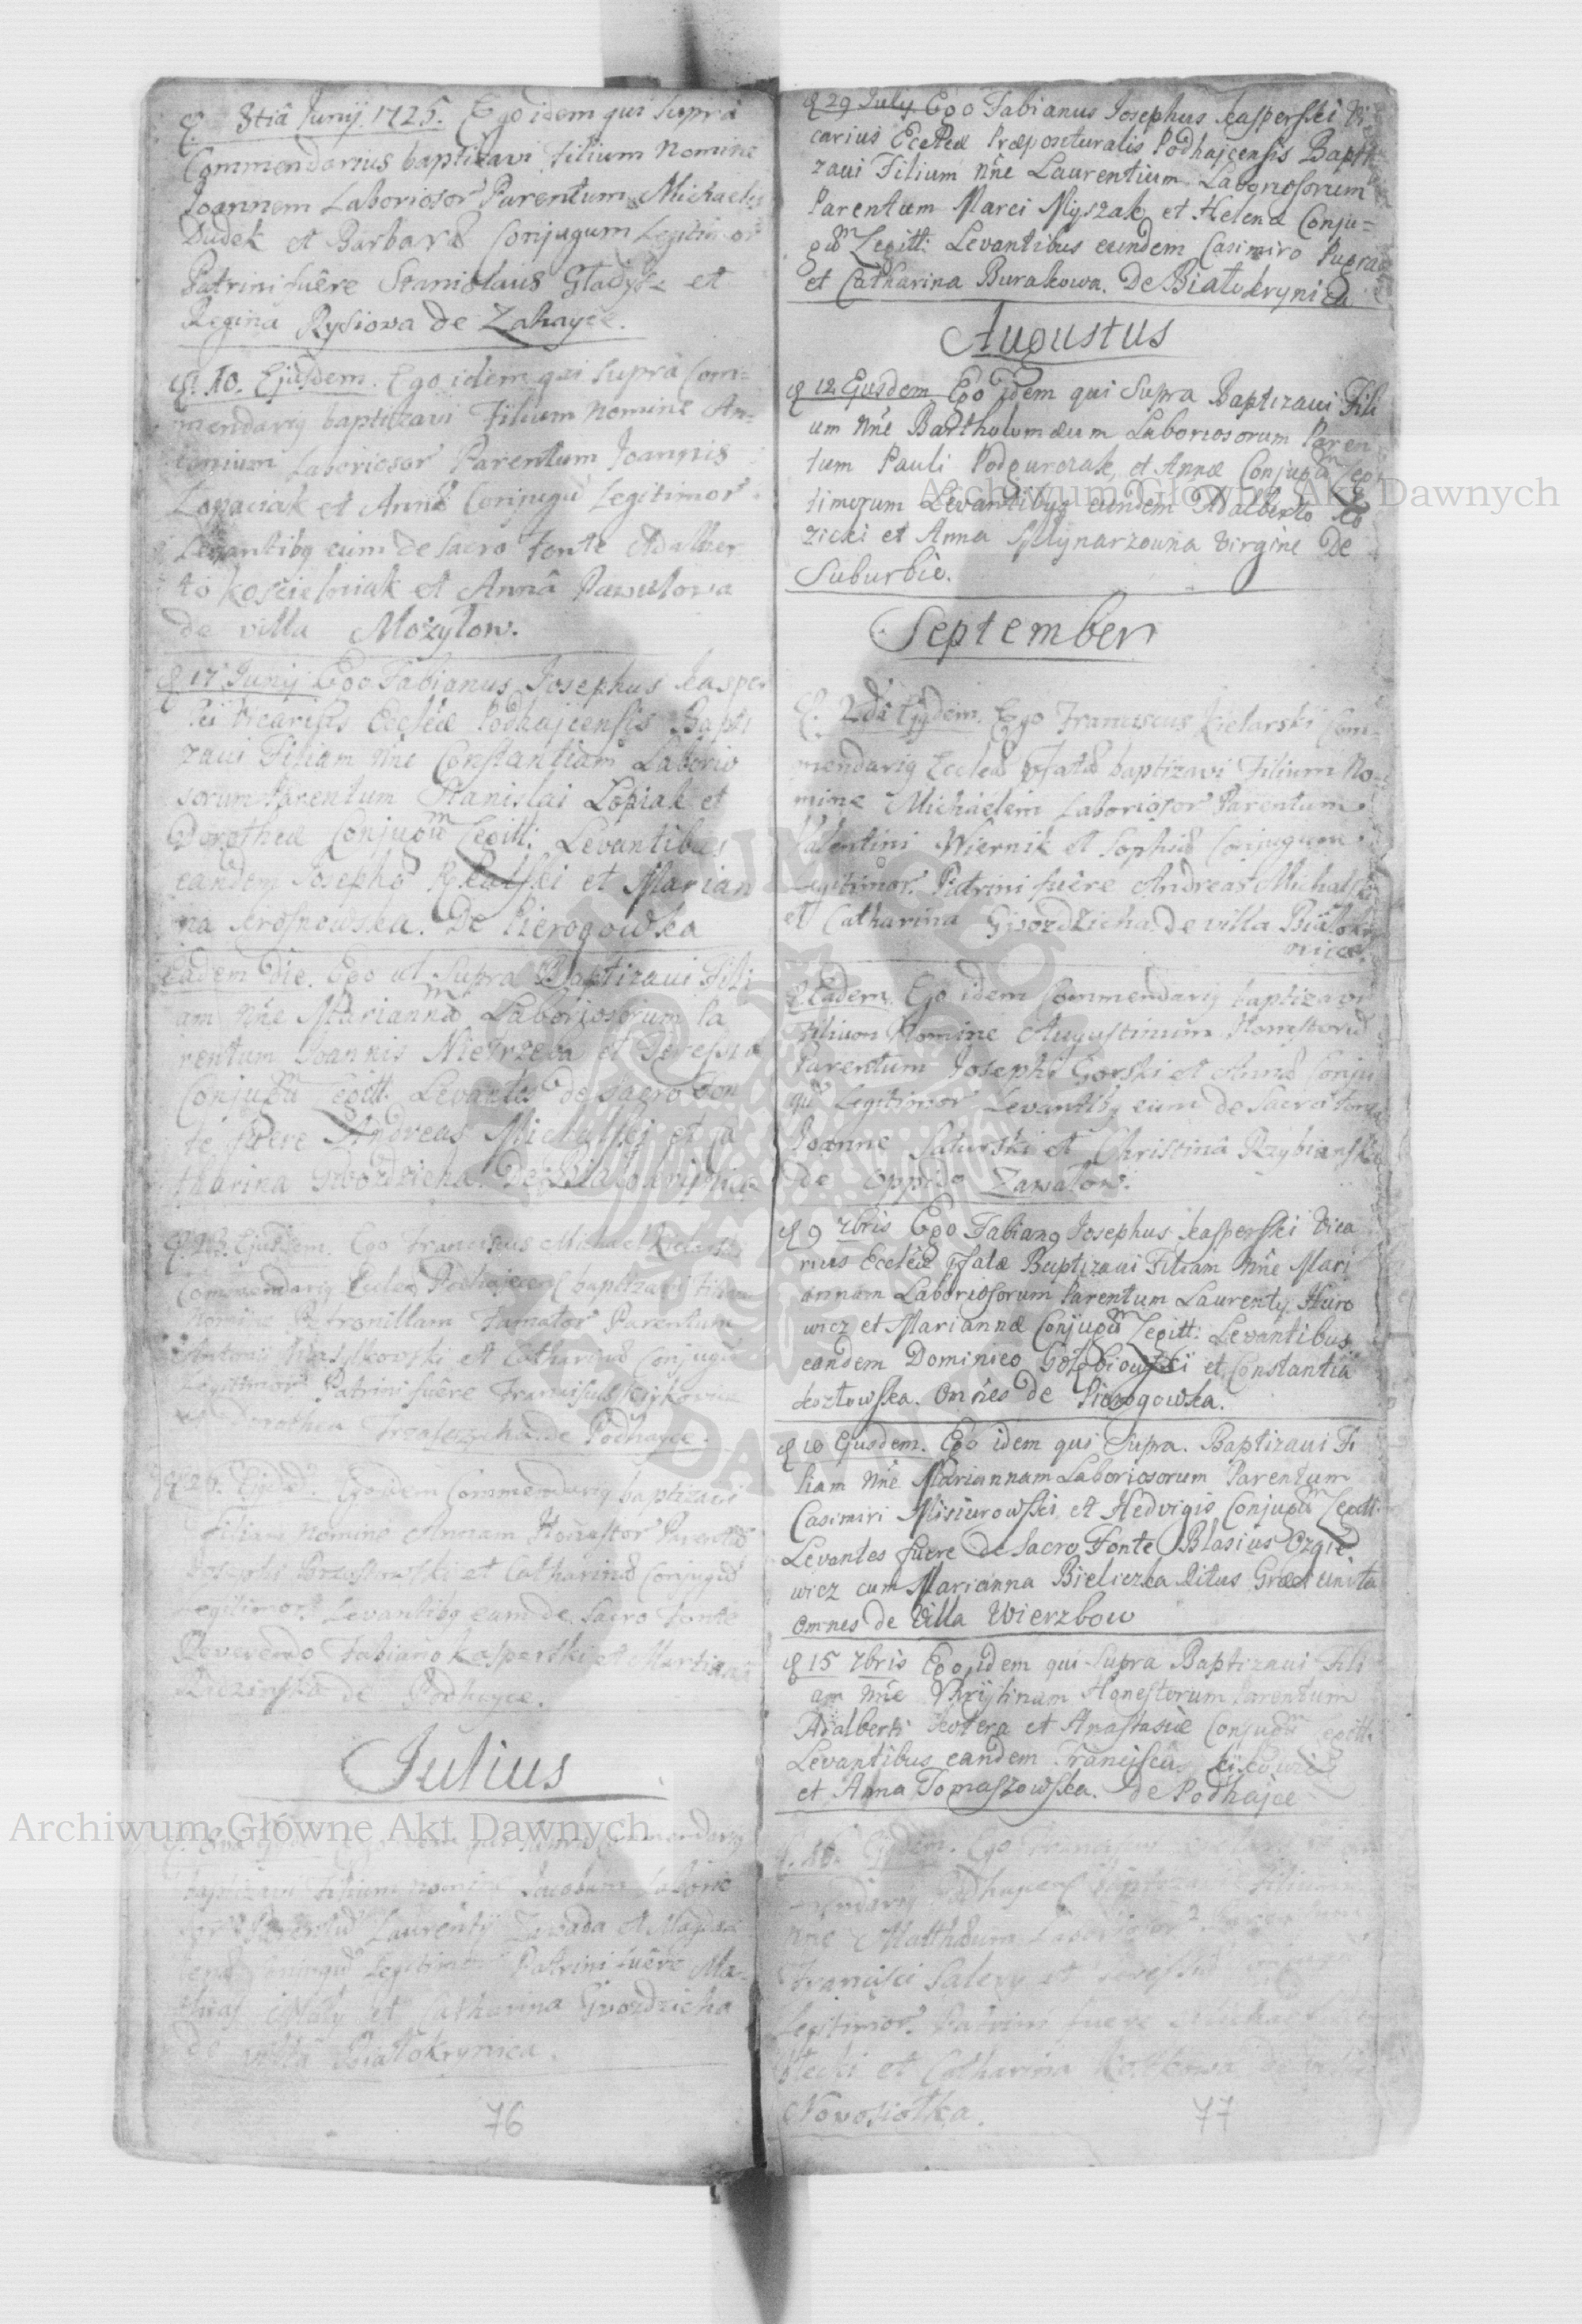 3tiâ Junij. 1725. Ego idem qui Supra
Commendarius baptizavi Filium Nomine
Joannem Laboriosor Parentum Michaelis
Dudek et Barbaræ Conjugum Legitimor
Patrini fuêre Stanislaus Gladysz et
Regina Rysiowa de Zahayce.
10. Ejusdem. Ego idem qui supra Com=
mendariq baptizavi Filium Nomine An=
tonium Laboriosor Parentum Joannis
Lopaciak et Annæ Conjugû Legitimor
Levantibq eum de Sacro Fonte Adalber
to Koscielniak et Annâ Pawulowa
de villa Mozylow.
17 Junij Ego Fabianus Josephus Kasper
ski Vicarius Eccléæ Podhajcensis Bapti
zaui Filiam nne Constantiam Laborio
sorum Parentum Stanislai Lopiak et
Dorotheæ Conjugum Legitt: Levantibus
eandem Josepho et Marian
na Krosnowska. De Pierogowka
Eadem Die. Ego ut Supra Baptizaui Fili
am nne Mariannam Laboriosorum Pa
rentum Joannis Nietrzeba et Teressiæ
Conjugum Legitt. Levantes de Sacro Fon
te fuere Andreas Michalski et Ca
tharina Gwozdzicha. De Bialokrynica
Ejusdem. Ego Franciscus Michael Kielarski
Commendariq Eccleæ Podhajcens baptizavi Filiam
Nomine Petronillam Famator Parentum
Antonii Wasylkowski et Catharinæ Conjugû
Legitimor Patrini fuêre Franciscus
et Dorothea de Podhayce.
Ego idem Commendariq baptizavi
Filiam Nomine Annam Honestor Parentû
et Catharinæ Conjugû
Legitimor. Levantibq eam de Sacro Fonte
Reverendo Fabiano Kasperski et Martianâ
de Podhayce.
Julius
Commendariq
baptizavi Filium Nomine Jacobum Laborio
sor Parentû Laurentij Zawada et Magda
lenæ Conjugû Legitimor Patrini fuêre Ma=
thias et Catharina Gwozdzicha
de villa Bialokrynica.
76
29 July Ego Fabianus Josephus Kasperski Vi
carius Eccléæ Præposituralis Podhajcensis Bapti
zaui Filium nne Laurentium Laboriosorum
Parentum Marci Myszak et Helenæ Conju=
gum Legitt: Levantibus eundem Casimiro
et Catharina Burakowa. De Bialokrynica
Augustus
12 Ejusdem Ego idem qui Supra Baptizaui Fili
um nne Bartholomæum Laboriosorum Paren
tum Pauli Podgurczak, et Annæ Conjugum Legi
timorum Levantibus eundem Adalberto
zicki et Anna Mlynarzowna Virgine De
Suburbio.
September
2dâ Ejqdem. Ego Franciscus Kielarski Com=
mendariq Eccleæ pfatæ baptizavi Filium No=
mine Michaelem Laboriosor Parentum
Valentini Wiernik et Sophiæ Conjugum
Legitimor. Patrini fuêre Andreas Michalski
et Catharina Gwozdzicha de villa Bialokry
nicæ.
Eadem. Ego idem Commendariq baptizavi
Filium Nomine Augustinum Honestorû
Parentum Josephi Gorski et Annæ Conju
gû Legitimor Levantibq eum de Sacro Fonte
Joanne et Christinâ
de oppido Zawalow.
9 7bris Ego Fabianq Josephus Kasperski Vica
rius Eccléæ pfatæ Baptizaui Filiam nne Mari
annam Laboriosorum Parentum Laurenty Huro
wicz et Mariannæ Conjugum Legitt: Levantibus
eandem Dominico Golębiowski et Constantia
Kozlowska. Omnes de Pierogowka.
10 Ejusdem. Ego idem qui Supra. Baptizaui Fi
liam nne Mariannam Laboriosorum Parentum
Casimiri Misiurowski et Hedvigis Conjugum Legitt.
Levantes fuere de Sacro Fonte Blasius Ozgie
wicz cum Marianna Bieliczka Ritus Græci Unita
omnes de Villa Wierzbow
15 7bris Ego idem qui Supra Baptizaui Fili
am nne Chrijstinam Honestorum Parentum
Adalberti Kotera et Anastasiæ Conjugum Legitt.
Levantibus eandem Francisco
et Anna Tomaszowska. de Podhajce
16. Ejqdem. Ego
mendariq Podhajcens baptizavi Filium
nne Matthæum Laboriosor Parentum
Francisci Salery et Teressiæ
Legitimor. Patrini fuere Michael
et Catharina de
Nowosiolka.
77
Archiwum Główne Akt Dawnych
Archiwum Główne Akt Dawnych